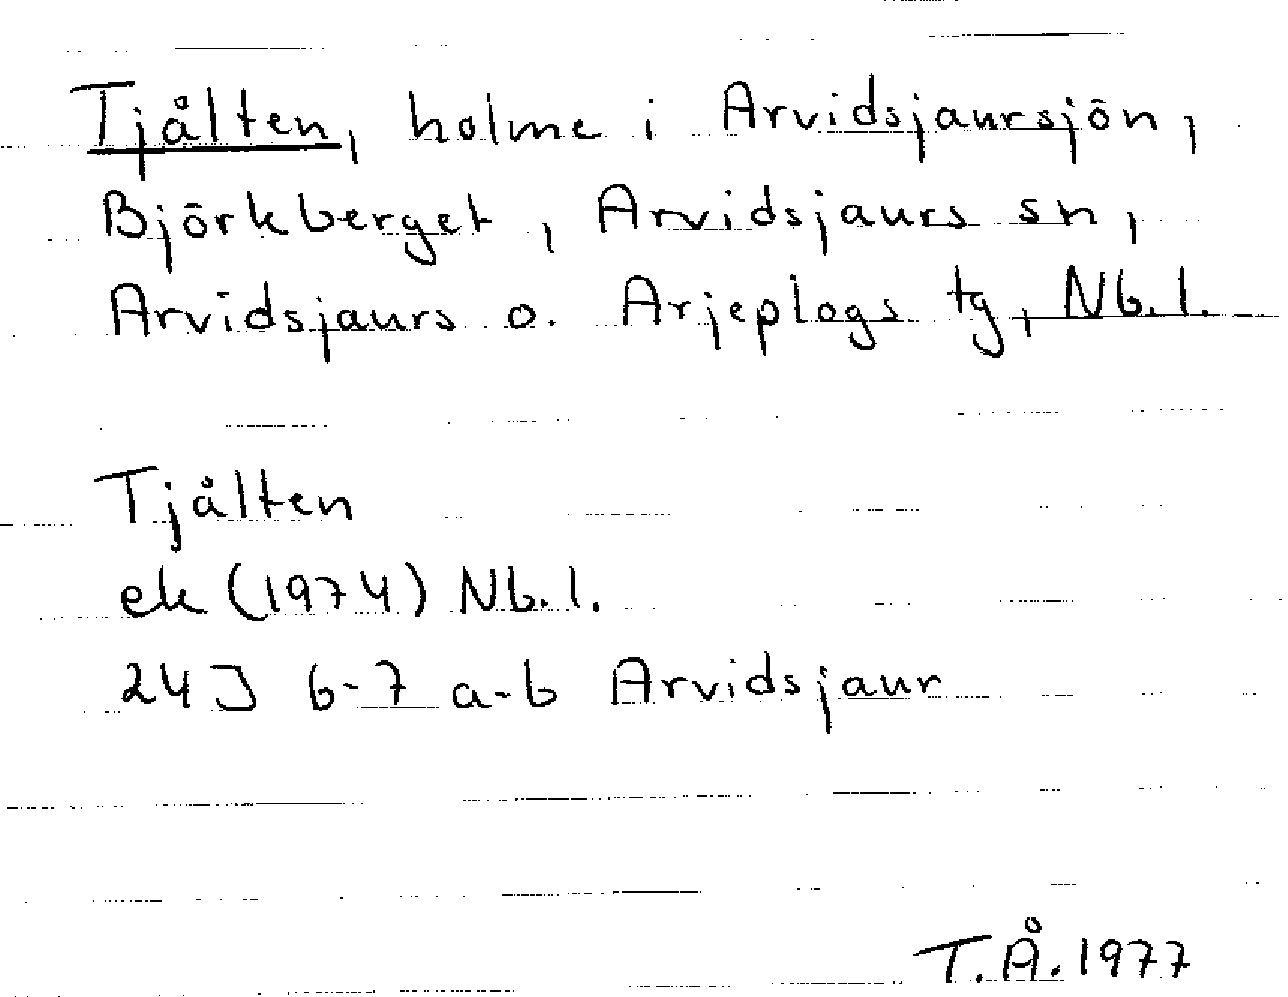 Tjålten, holme i Arvidsjaursjön,
Björkberget, Arvidsjaurs sn,
Arvidsjaurs o. Arjeplogs tg, Nb. l.
Tjålten
ek (1974) Nb. l.
24J 6-7 a-b Arvidsjaur
T.Å. 1977